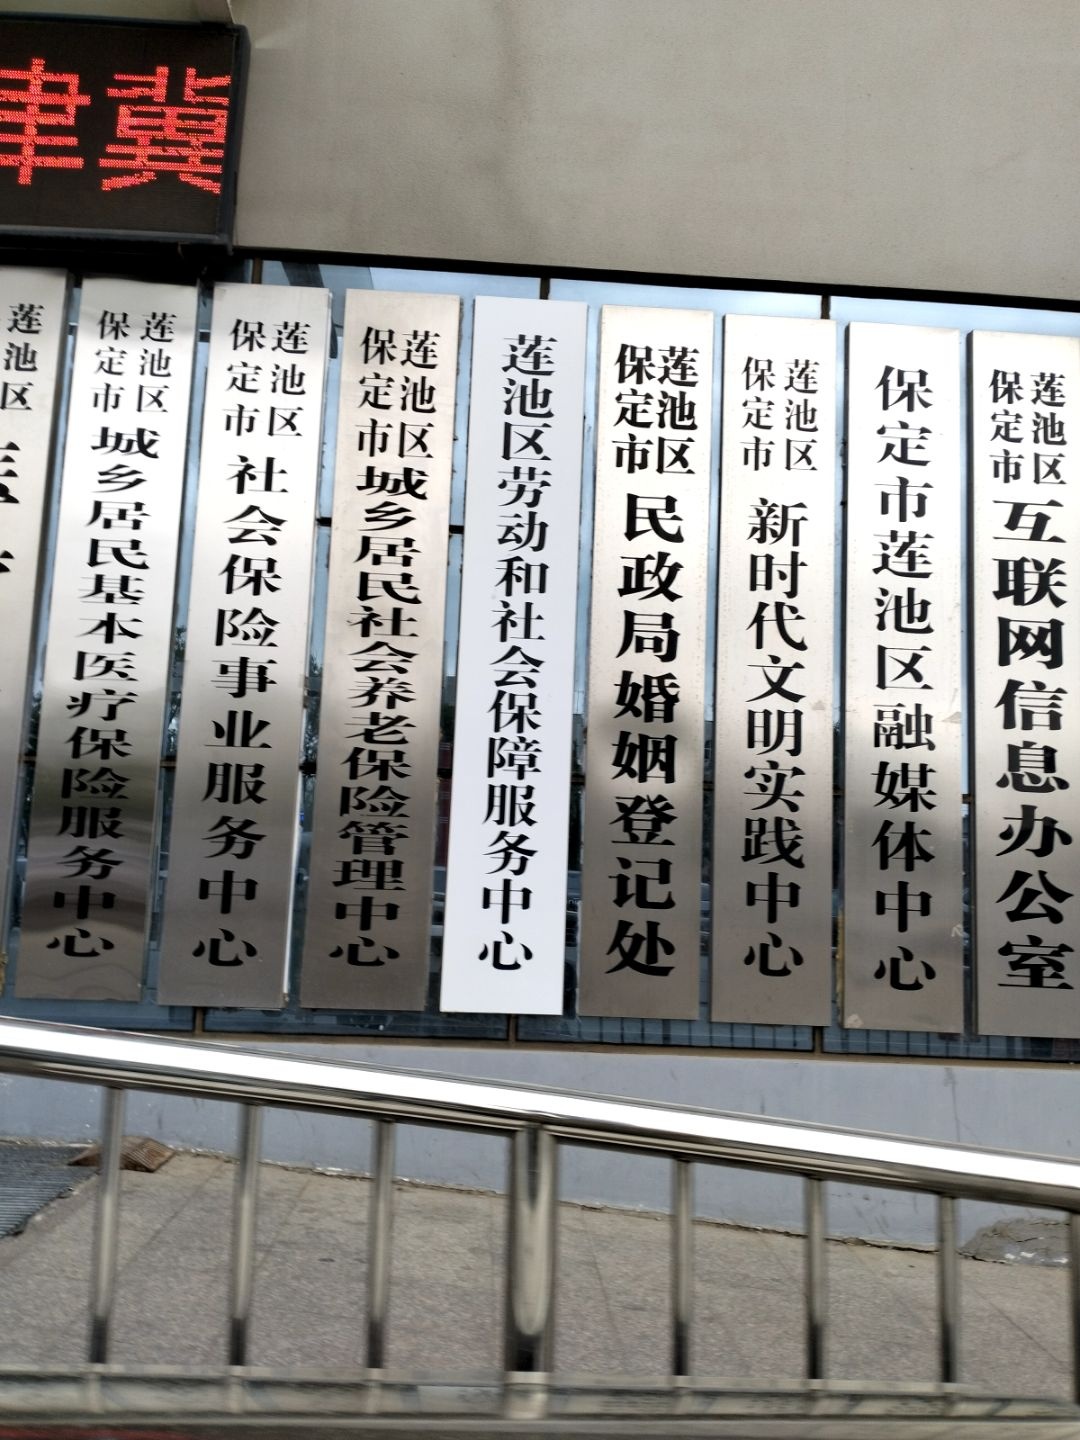 津冀
莲池区
保定市莲池区城乡居民基本医疗保险服务中心
保定市莲池区社会保险事业服务中心
保定市莲池区城乡居民社会养老保险管理中心
莲池区劳动和社会保障服务中心
保定市莲池区民政局婚姻登记处
保定市莲池区新时代文明实践中心
保定市莲池区融媒体中心
保定市莲池区互联网信息办公室